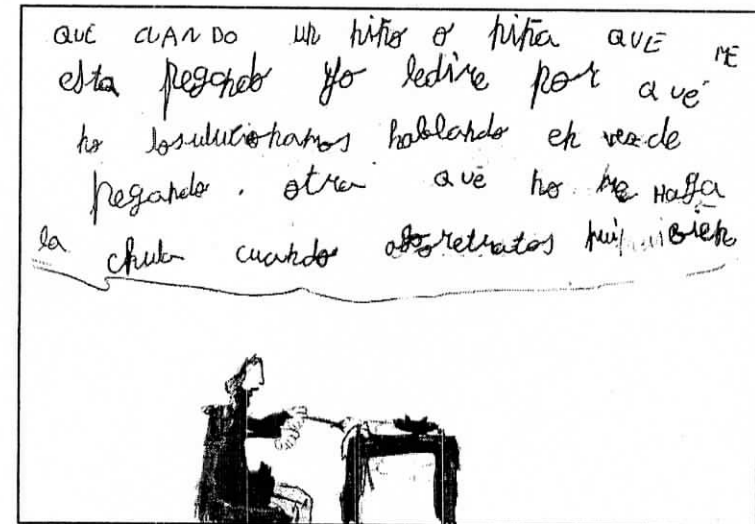 QUE CUANDO un niño o niña QUE ME
esta pegando yo ledire por qué
no losulucionamos hablando en vez de
pegando. otra qué no me Haga
la chula cuando retratos bien